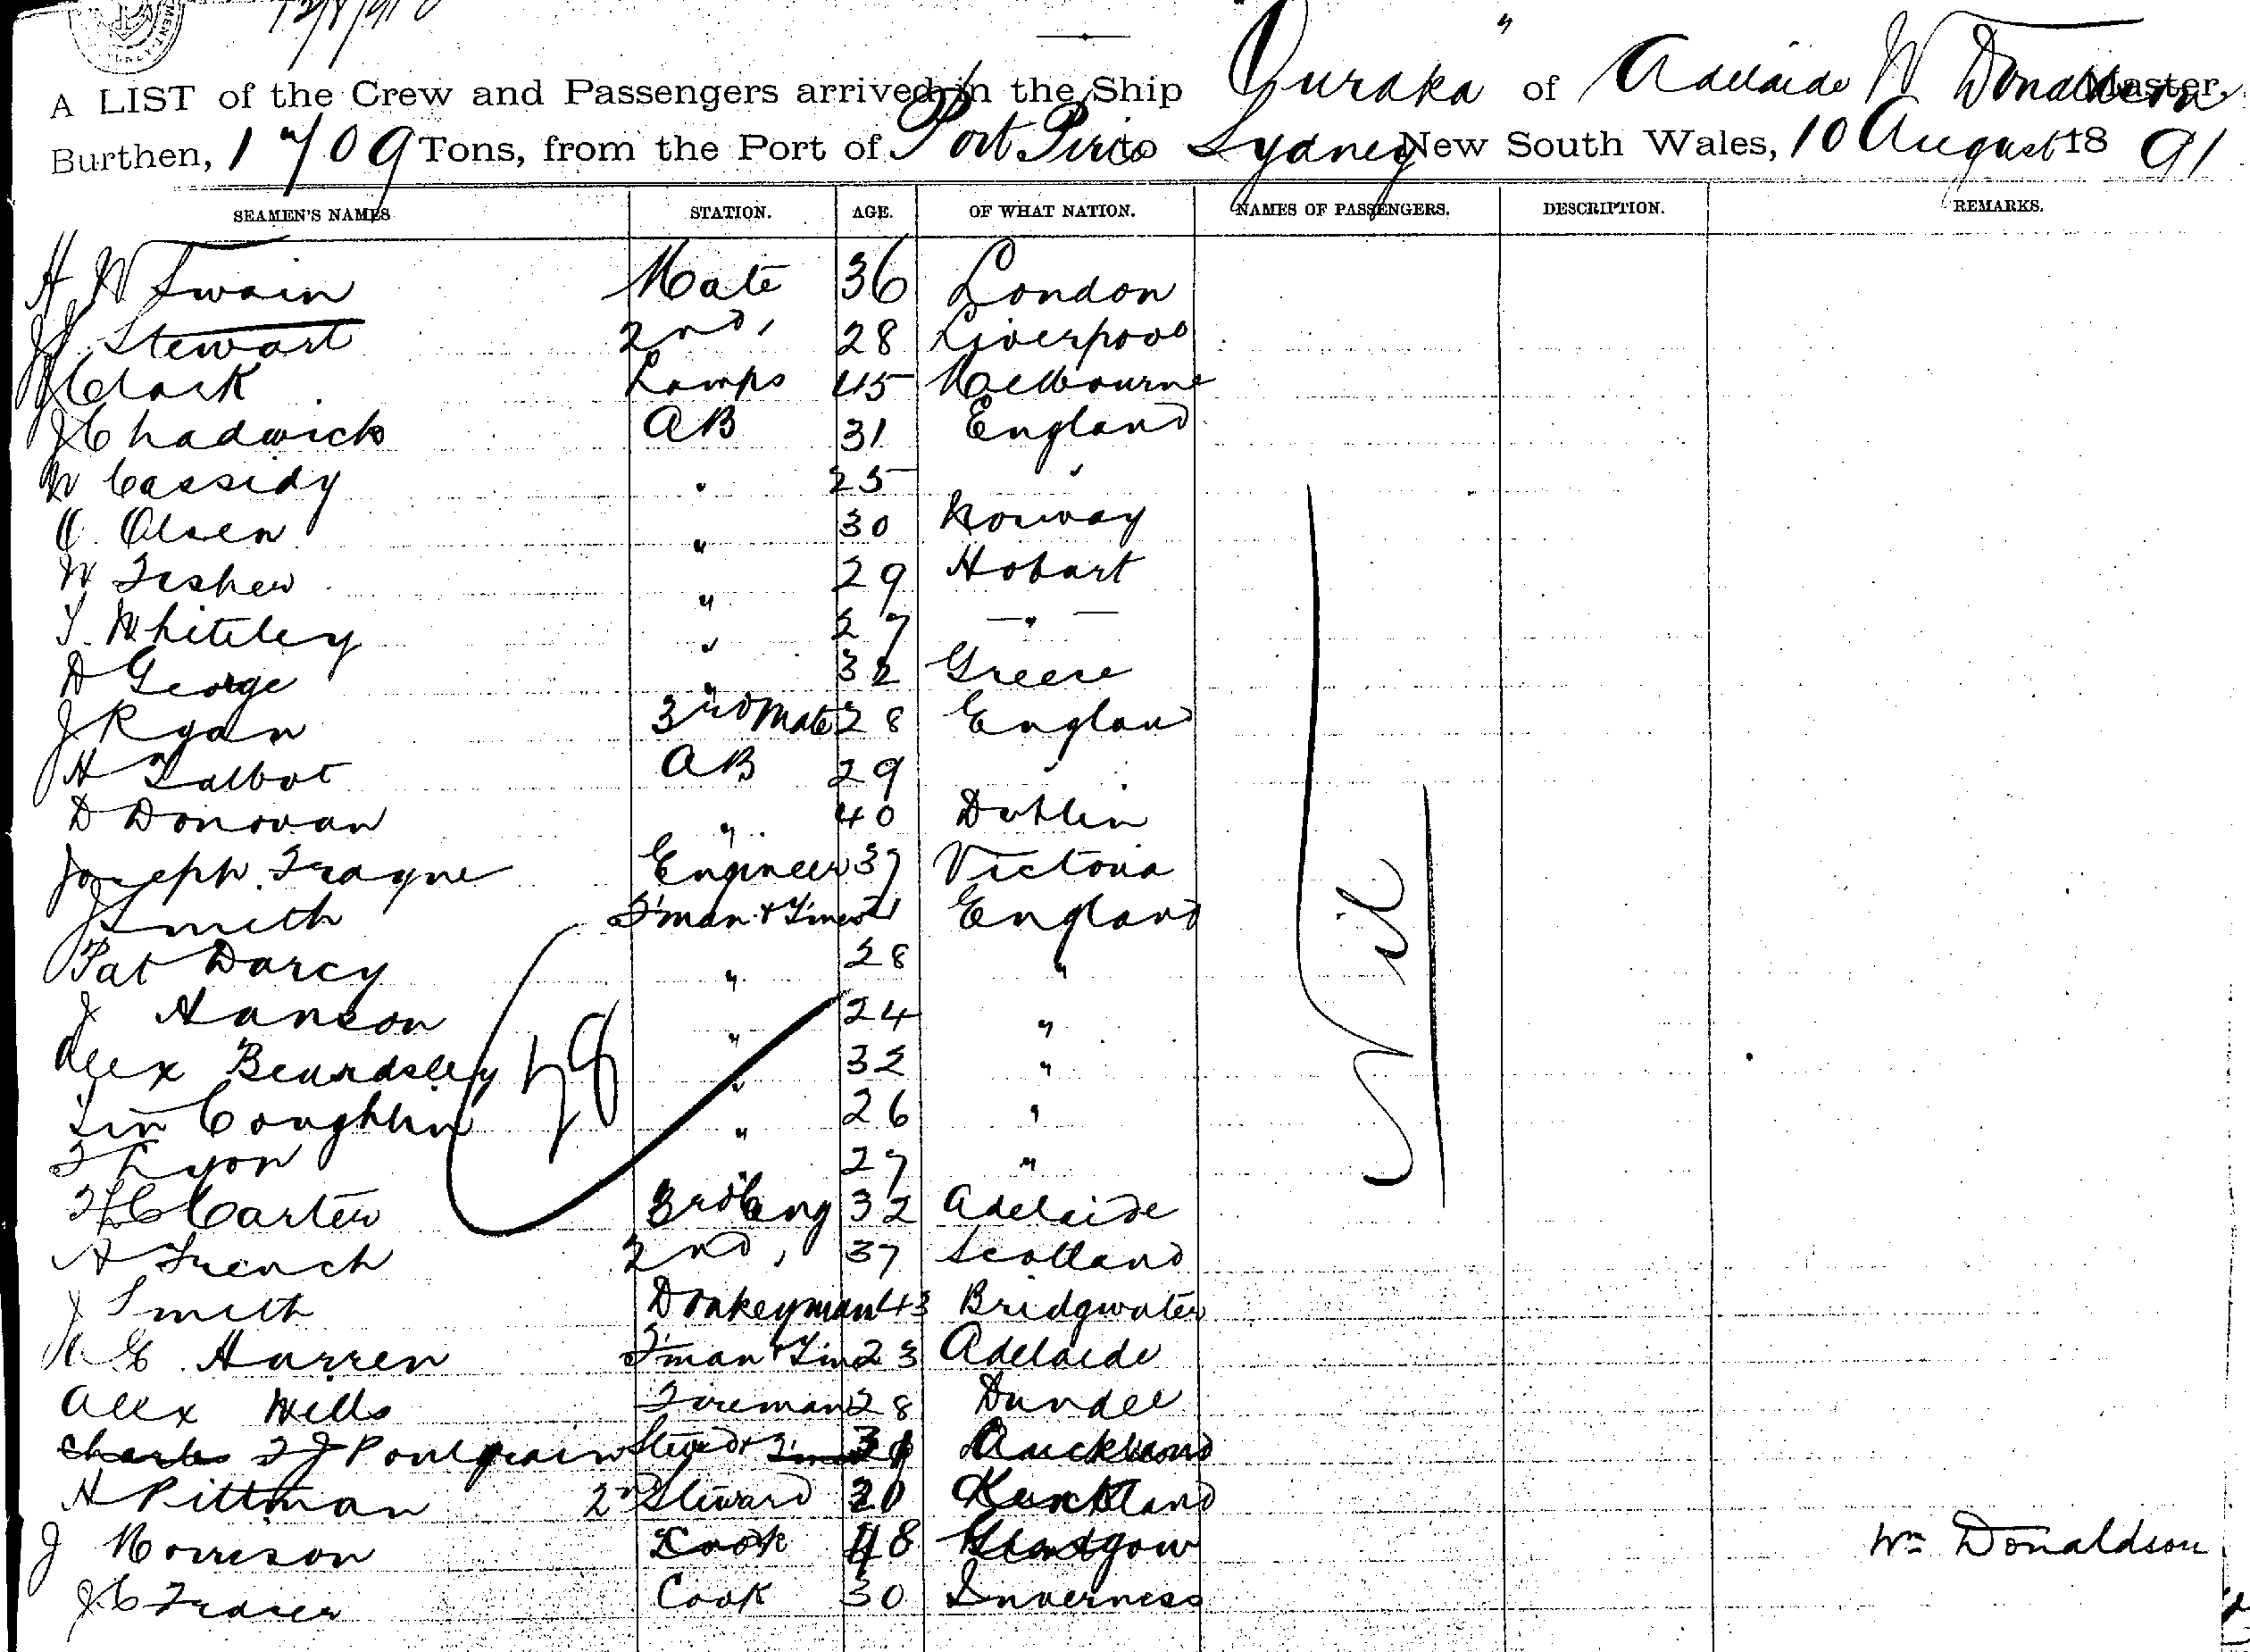 A LIST of the Crew and Passengers arrived in the Ship "Ouraka" of Adelaide W Donaldson Master,
Burthen, 1709 Tons, from the Port of Port Pirie to Sydney New South Wales, 10 August 1891
SEAMEN'S NAMES STATION. AGE. OF WHAT NATION. NAMES OF PASSENGERS. DESCRIPTION. REMARKS.
H W Swain Mate 36 London
Stewart 2nd " 28 Liverpool
J Clark Lamps 45 Melbourne
J Chadwick AB 31 England
W Cassidy " 25 "
O. Olsen " 30 Norway
W Fisher " 29 Hobart
T. Whiteley " 27 — " —
D George " 32 Greece
J Ryan 3rd Mate 28 England
H Talbot AB 29 "
D Donovan " 40 Dublin
Joseph Trayne Engineer 37 Victoria
J Smith F'man & Trimer England
Pat Darcy " 28 "
J Hanson " 24 "
Alex Beardsley " 32 "
Tim Coughlin " 26 "
T Lyon " 27 "
Carter 3rd Eng 32 Adelaide
A French 2nd " 37 Scotland
J Smith Donkeyman 43 Bridgwater
H E. Harren F'man & Trim 23 Adelaide
Alex Wells Fireman 28 Dundee
Charles F J Poulgrain Steward Auckland
H Pittman 2nd Steward 20 Auckland
J Morrison Cook 48 Glasgow
J C Fraser Cook 30 Inverness
Nil
Wm Donaldson